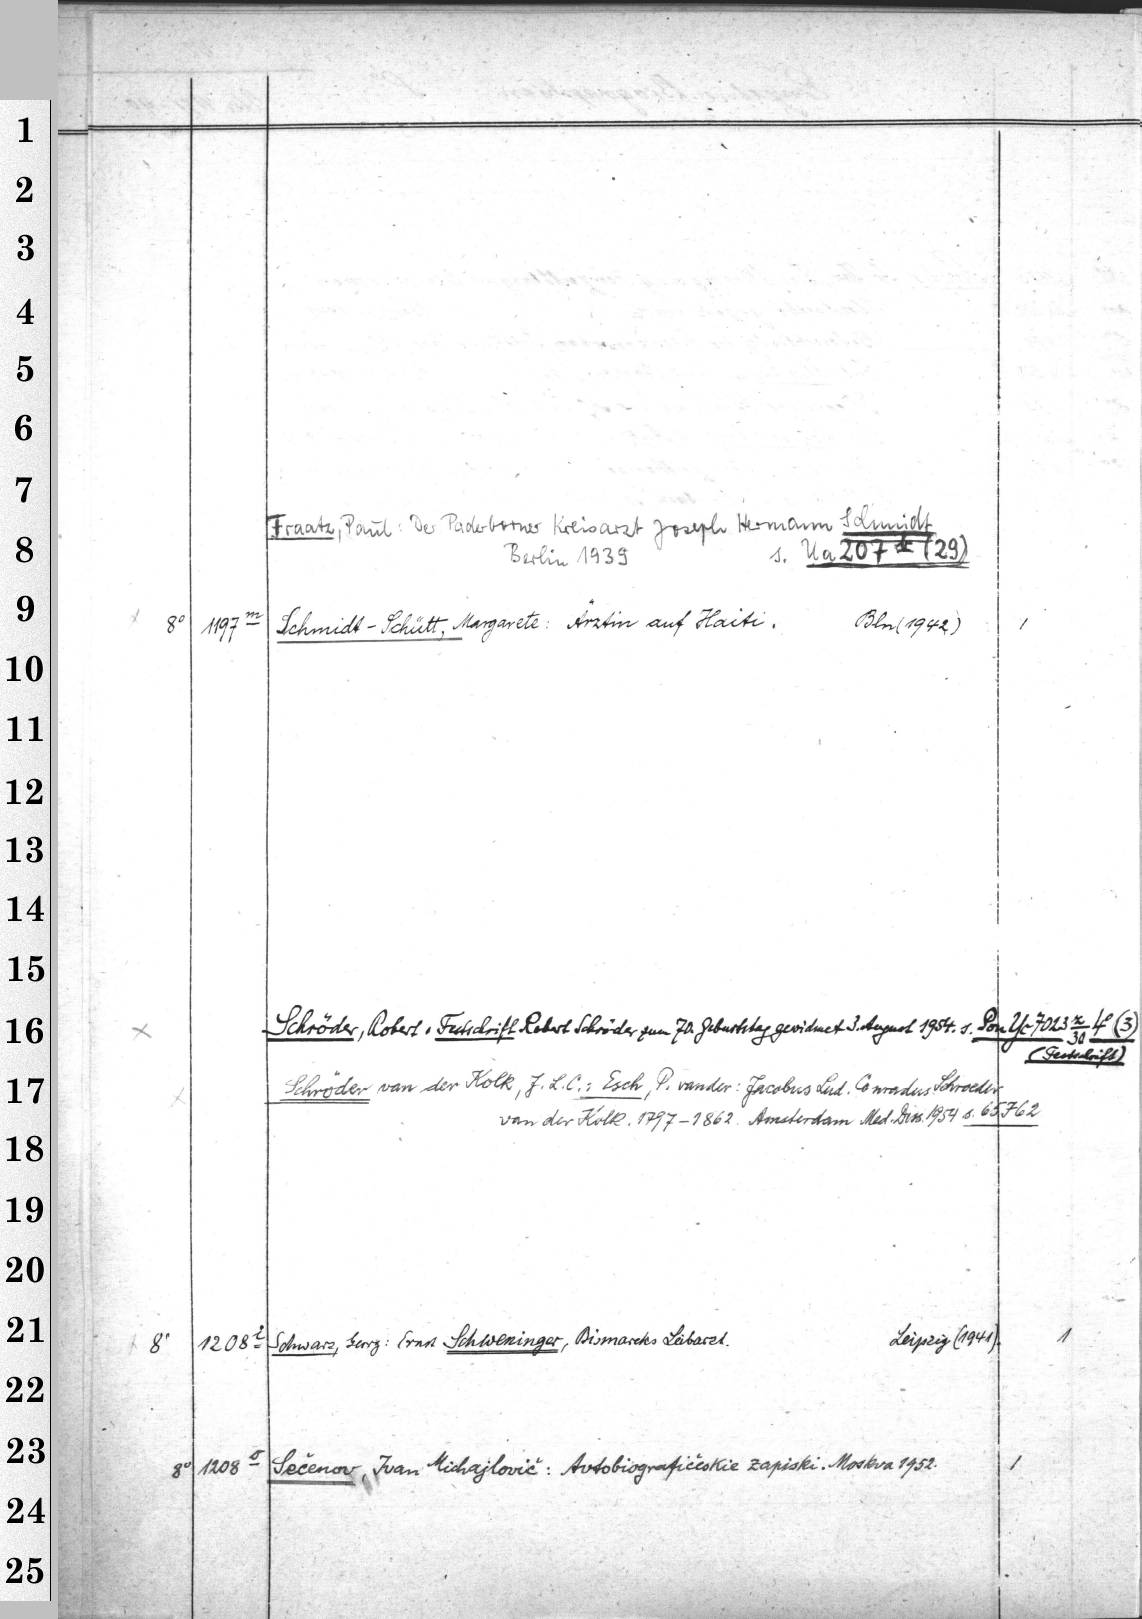 1
2
3
4
5
6
7
Fraatz, Paul: Der Paderborner Kreisarzt Joseph Hermann Schmidt
8
Berlin 1939 s. Ua 207 (29)
9
8° 1197 m Schmidt-Schütt, Margarete: Ärztin auf Haiti. Bln (1942) 1
10
11
12
13
14
15
16
Schröder, Robert. Festschrift Robert Schröder zum 70. Geburtstag gewidmet 3. August 1954. s. Yc 7023 4° (3)
(Festschrift)
17
Schröder van der Kolk, J. L. C.: Esch, P. vander: Jacobus Lud. Conradus Schroeder
van der Kolk. 1797-1862. Amsterdam Med. Diss. 1954 s. 65762
18
19
20
21
8° 1208 i Schwarz, Georg: Ernst Schweninger, Bismarcks Leibarzt. Leipzig (1941). 1
22
23
8° 1208 Sečenov, Ivan Michajlovič: Avtobiografičeskie zapiski. Moskva 1952. 1
24
25